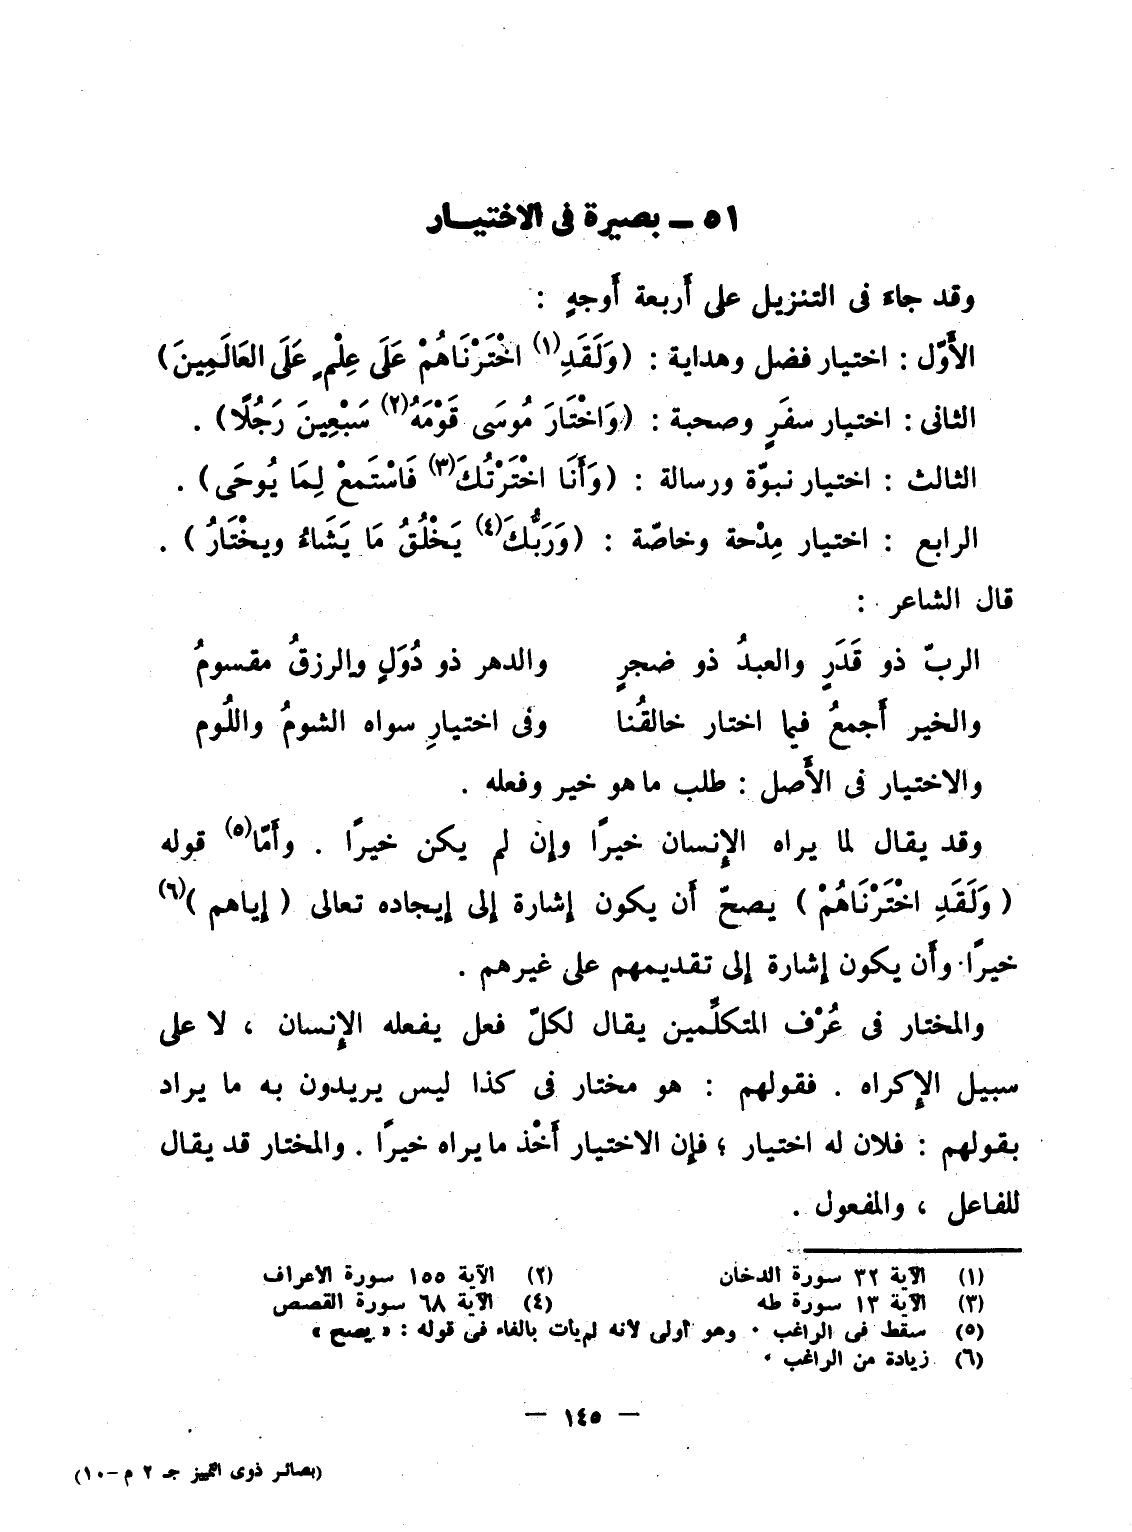 ٥١ ــ بصيرة فى الاختيــار
وقد جاءَ فى التنزيل على أَربعة أَوجهٍ :
الأَوّل : اختيار فضل وهداية : (وَلَقَدِ(١) اخْتَرْنَاهُمْ عَلَى عِلْمٍ عَلَى العَالَمِينَ)
الثانى : اختيار سفَرٍ وصحبة : (وَاخْتَارَ مُوسَى قَوْمَهُ(٢) سَبْعِينَ رَجُلًا) .
الثالث : اختيار نبوّة ورسالة : (وَأَنَا اخْتَرْتُكَ(٣) فَاسْتَمعْ لِمَا يُوحَى) .
الرابع : اختيار مِدْحة وخاصّة : (وَرَبُّكَ(٤) يَخْلُقُ مَا يَشَاءُ ويخْتَارُ ) .
قال الشاعر :
الربّ ذو قَدَرٍ والعبدُ ذو ضجرٍ والدهر ذو دُوَلٍ والرزقُ مقسومُ
والخير أَجمعُ فيما اختار خالقُنا وفى اختيارِ سواه الشومُ واللُوم
والاختيار فى الأَصل : طلب ما هو خير وفعله .
وقد يقال لما يراه الإِنسان خيرًا وإِن لم يكن خيرًا . وأَمّا(٥) قوله
( وَلَقَدِ اخْتَرْنَاهُمْ ) يصحّ أَن يكون إِشارة إِلى إِيجاده تعالى ( إِياهم )(٦)
خيرًا وأَن يكون إِشارة إِلى تقديمهم على غيرهم .
والمختار فى عُرْف المتكلِّمين يقال لكلّ فعل يفعله الإِنسان ، لا على
سبيل الإِكراه . فقولهم : هو مختار فى كذا ليس يريدون به ما يراد
بقولهم : فلان له اختيار ؛ فإِن الاختيار أَخْذ ما يراه خيرًا . والمختار قد يقال
للفاعل ، والمفعول .
(١) الآية ٣٢ سورة الدخان (٢) الآية ١٥٥ سورة الأعراف
(٣) الآية ١٣ سورة طه (٤) الآية ٦٨ سورة القصص
(٥) سقط فى الراغب . وهو أولى لأنه لم يأت بالفاء فى قوله : « يصح »
(٦) زيادة من الراغب .
— ١٤٥ —
(بصائر ذوى التمييز جـ ٢ م -١٠)